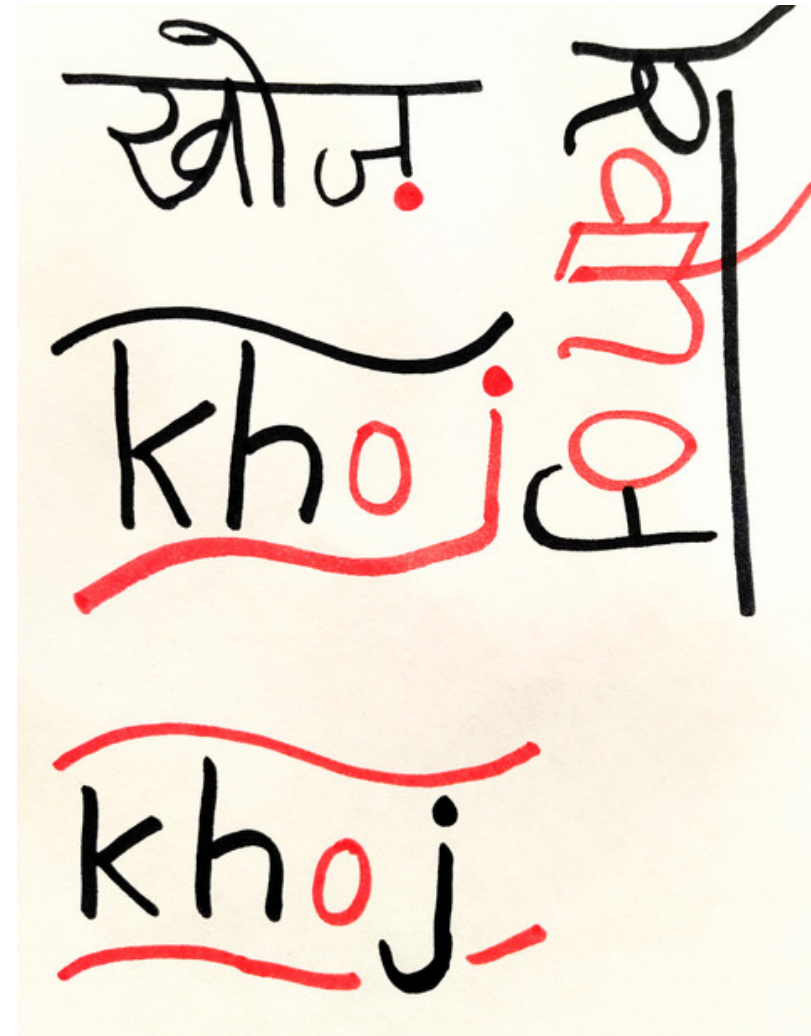 खोज
khoj
khoj